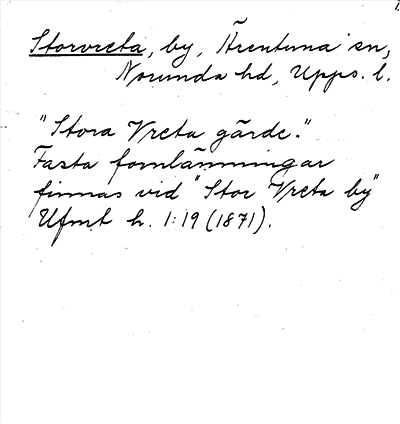 Storvreta, by, Ärentuna sn,
Norunda hd, Upps. l.
"Stora Vreta gärde."
Fasta fornlämningar
finnas vid "Stor Vreta by"
Ufmt h. 1:19 (1871).